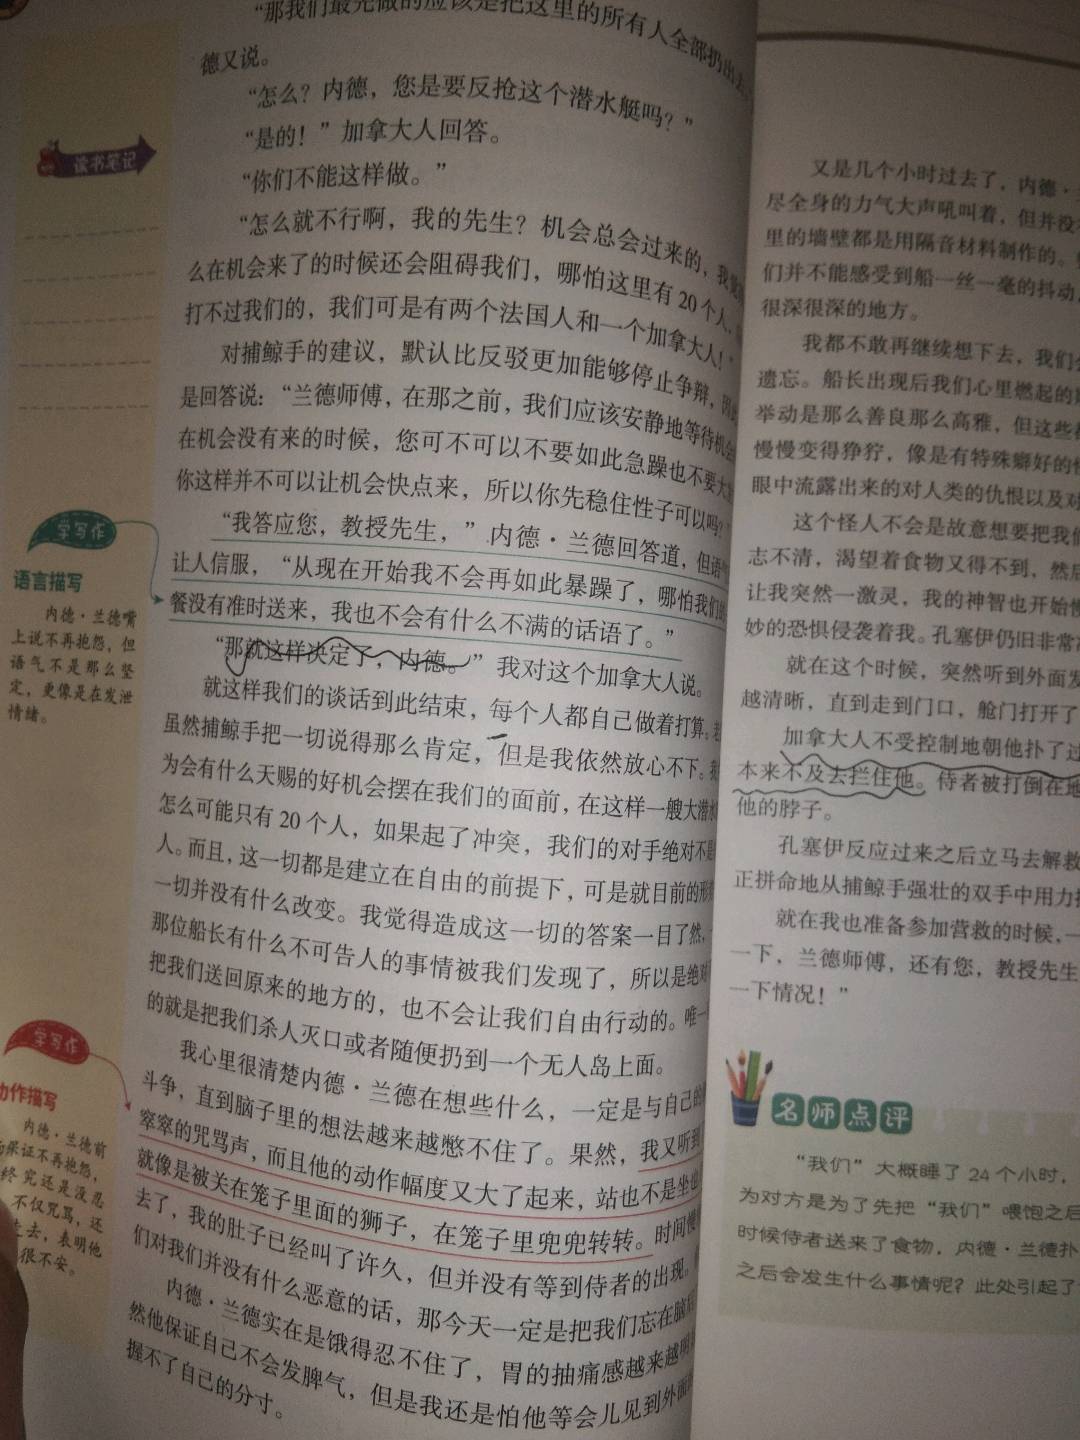 “那我们最先做的应该是把这里的所有人全部扔出去
德又说。
“怎么？内德，您是要反抢这个潜水艇吗？”
“是的！”加拿大人回答。
“你们不能这样做。”
“怎么就不行啊，我的先生？机会总会过来的，我
么在机会来了的时候还会阻碍我们，哪怕这里有20个人，
打不过我们的，我们可是有两个法国人和一个加拿大人！”
对捕鲸手的建议，默认比反驳更加能够停止争辩，因
是回答说：“兰德师傅，在那之前，我们应该安静地等待机会
在机会没有来的时候，您可不可以不要如此急躁也不要大
你这样并不可以让机会快点来，所以你先稳住性子可以吗？
“我答应您，教授先生，”内德·兰德回答道，但语
让人信服，“从现在开始我不会再如此暴躁了，哪怕我们
餐没有准时送来，我也不会有什么不满的话语了。”
“那就这样决定了，内德。”我对这个加拿大人说。
就这样我们的谈话到此结束，每个人都自己做着打算。
虽然捕鲸手把一切说得那么肯定，但是我依然放心不下。
为会有什么天赐的好机会摆在我们的面前，在这样一艘大潜
怎么可能只有20个人，如果起了冲突，我们的对手绝对不是
人。而且，这一切都是建立在自由的前提下，可是就目前的形
一切并没有什么改变。我觉得造成这一切的答案一目了然，
那位船长有什么不可告人的事情被我们发现了，所以是绝对
把我们送回原来的地方的，也不会让我们自由行动的。唯一
的就是把我们杀人灭口或者随便扔到一个无人岛上面。
我心里很清楚内德·兰德在想些什么，一定是与自己的
斗争，直到脑子里的想法越来越憋不住了。果然，我又听到
窣窣的咒骂声，而且他的动作幅度又大了起来，站也不是坐也
就像是被关在笼子里面的狮子，在笼子里兜兜转转。时间慢
去了，我的肚子已经叫了许久，但并没有等到侍者的出现。
们对我们并没有什么恶意的话，那今天一定是把我们忘在脑
内德·兰德实在是饿得忍不住了，胃的抽痛感越来越明
然他保证自己不会发脾气，但是我还是怕他等会儿见到外面
握不了自己的分寸。
读书笔记
学写作
语言描写
内德·兰德嘴
上说不再抱怨，但
语气不是那么坚
定，更像是在发泄
情绪。
学写作
动作描写
内德·兰德前
保证不再抱怨，
终究还是没忍
不仅咒骂，还
走去，表明他
很不安。
又是几个小时过去了，内德·
尽全身的力气大声吼叫着，但并没
里的墙壁都是用隔音材料制作的。
们并不能感受到船一丝一毫的抖动
很深很深的地方。
我都不敢再继续想下去，我们
遗忘。船长出现后我们心里燃起的
举动是那么善良那么高雅，但这些
慢慢变得狰狞，像是有特殊癖好的
眼中流露出来的对人类的仇恨以及对
这个怪人不会是故意想要把我们
志不清，渴望着食物又得不到，然后
让我突然一激灵，我的神智也开始
妙的恐惧侵袭着我。孔塞伊仍旧非常
就在这个时候，突然听到外面发
越清晰，直到走到门口，舱门打开了
加拿大人不受控制地朝他扑了过
本来不及去拦住他。侍者被打倒在地
他的脖子。
孔塞伊反应过来之后立马去解救
正拼命地从捕鲸手强壮的双手中用力
就在我也准备参加营救的时候，一
一下，兰德师傅，还有您，教授先生
一下情况！”
名师点评
“我们”大概睡了24个小时，
为对方是为了先把“我们”喂饱之后
时候侍者送来了食物，内德·兰德扑
之后会发生什么事情呢？此处引起了